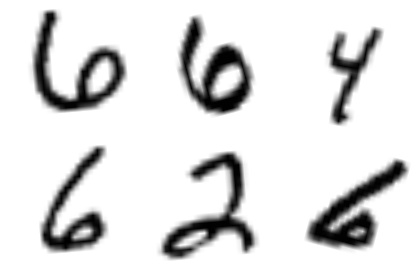 6 6 4
6 2 6